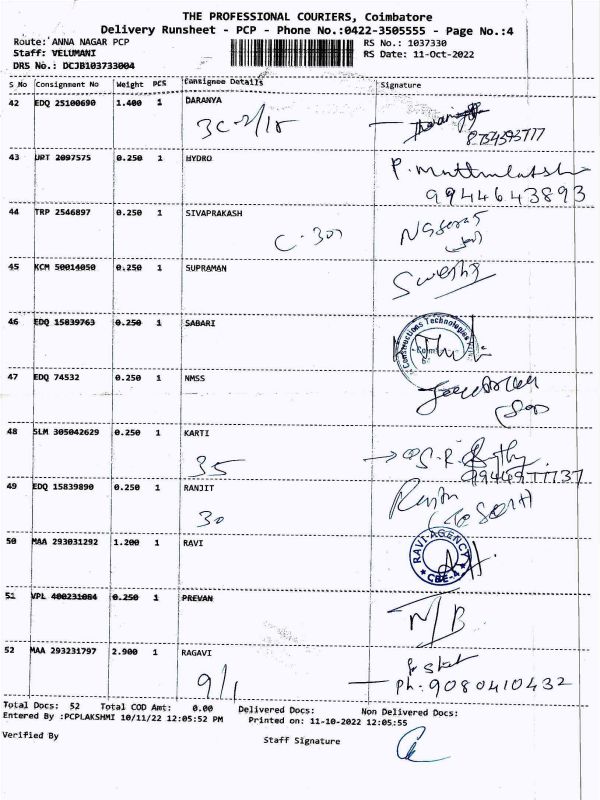 THE PROFESSIONAL COURIERS, Coimbatore
Delivery Runsheet - PCP - Phone No.:0422-3505555 - Page No.:4
Route: ANNA NAGAR PCP
RS No.: 1037330
Staff: VELUMANI
RS Date: 11-Oct-2022
DRS No.: DCJB103733004
S_No Consignment No Weight PCS Consignee Details Signature
42 EDQ 25100690 1.400 1 DARANYA
43 URT 2097575 0.250 1 HYDRO
9944643893
44 TRP 2546897 0.250 1 SIVAPRAKASH
45 KCM 50014050 0.250 1 SUPRAMAN
46 EDQ 15839763 0.250 1 SABARI
Constructions Technologies
47 EDQ 74532 0.250 1 NMSS
48 SLM 305042629 0.250 1 KARTI
35
49 EDQ 15839890 0.250 1 RANJIT
30
50 MAA 293031292 1.200 1 RAVI
RAVI-AGENCY
CBE-4
51 VPL 400231084 0.250 1 PREVAN
N/B
52 MAA 293231797 2.900 1 RAGAVI
9/1
Ph: 9080410432
Total Docs: 52 Total COD Amt: 0.00 Delivered Docs: Non Delivered Docs:
Entered By :PCPLAKSHMI 10/11/22 12:05:52 PM Printed on: 11-10-2022 12:05:55
Verified By
Staff Signature